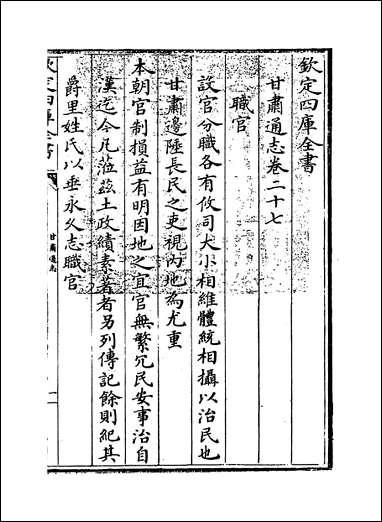 欽定四庫全書
甘肅通志卷二十七
職官
設官分職各有攸司大小相維體統相攝以治民也
甘肅邊陲長民之吏視內地為尤重
本朝官制損益有明因地之宜官無繁冗民安事治自
漢迄今凡蒞茲土政績素著者另列傳記餘則紀其
爵里姓氏以垂永久志職官
甘肅通志